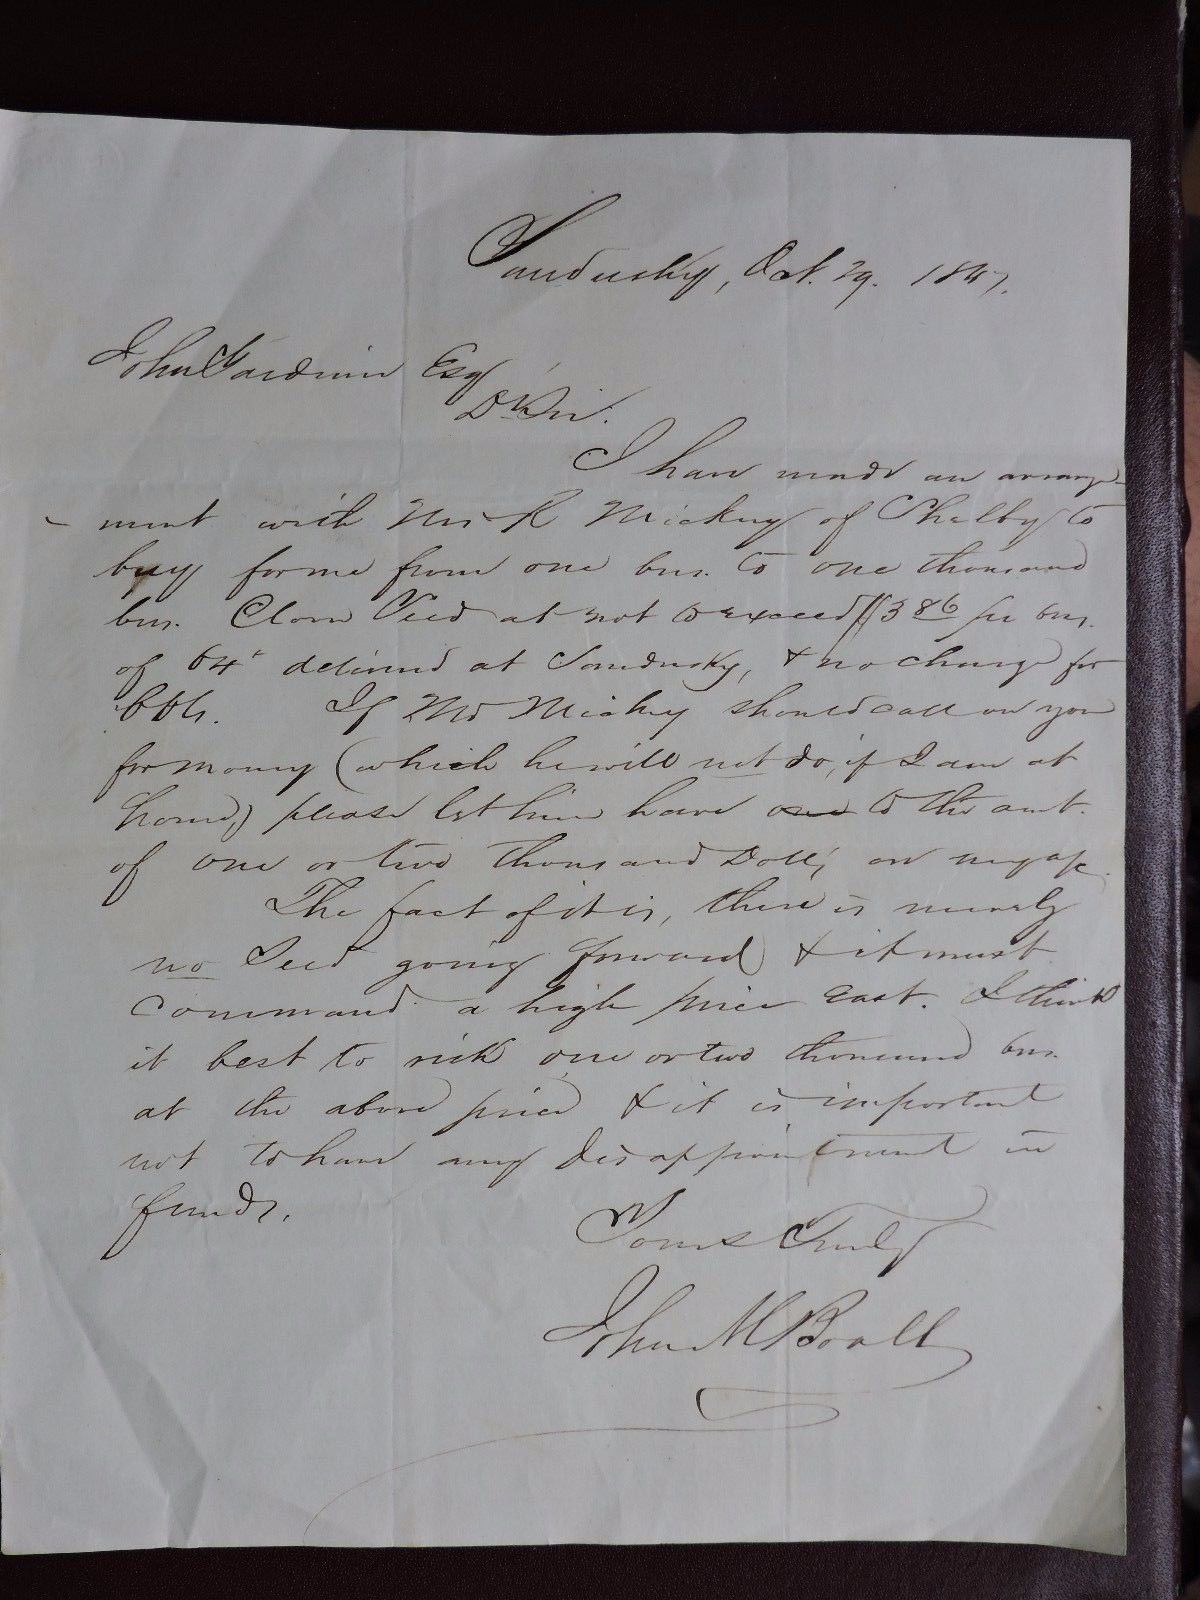 Sandusky, Oct. 29. 1847.
John Gardiner Esq
Dr Sir.
I have made an arrange-
-ment with Mr R Mickey of Shelby to
buy for me from one bus. to one thousand
bus. Clover Seed at not to exceed $3 86 per bus.
of 64 delivered at Sandusky, & no charge for
bbls. If Mr Mickey should call on you
for money (which he will not do, if I am at
home,) please let him have to the amt.
of one or two thousand Dolls, on my a/c.
The fact of it is, there is nearly
no Seed going forward & it must
command a high price East. I think
it best to risk one or two thousand bus.
at the above price & it is important
not to have any disappointment in
funds.
Yours Truly
John M Boalt